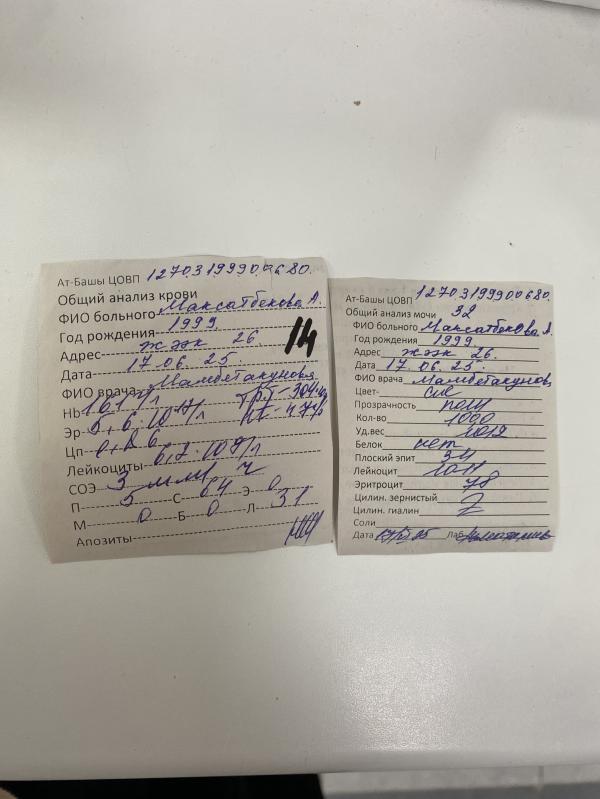 Ат-Башы ЦОВП 12703199900680.
Общий анализ крови
ФИО больного Максатбекова А.
Год рождения 1999.
Адрес жээк 26.
Дата 17.06.25.
14
ФИО врача Мамбетакунова
Hb 161 г/л трт-304
Эр 5,6.10 /л Ht-47%
Цп 0,86
Лейкоциты 6,2.10 /л
СОЭ 3 мм/ч
П 5 С 64 Э 0
М 0 Б 0 Л 31
Апозиты
Ат-Башы ЦОВП 12703199900680.
Общий анализ мочи 32
ФИО больного Максатбекова А.
Год рождения 1999
Адрес жээк 26.
Дата 17.06.25.
ФИО врача Мамбетакунов
Цвет- с/ж
Прозрачность полн
Кол-во 100,0
Уд.вес 1012
Белок нет
Плоский эпит 3-4
Лейкоцит
Эритроцит
Цилин. зернистый
Цилин. гиалин
Соли
Дата 17/VI 25 Лаб